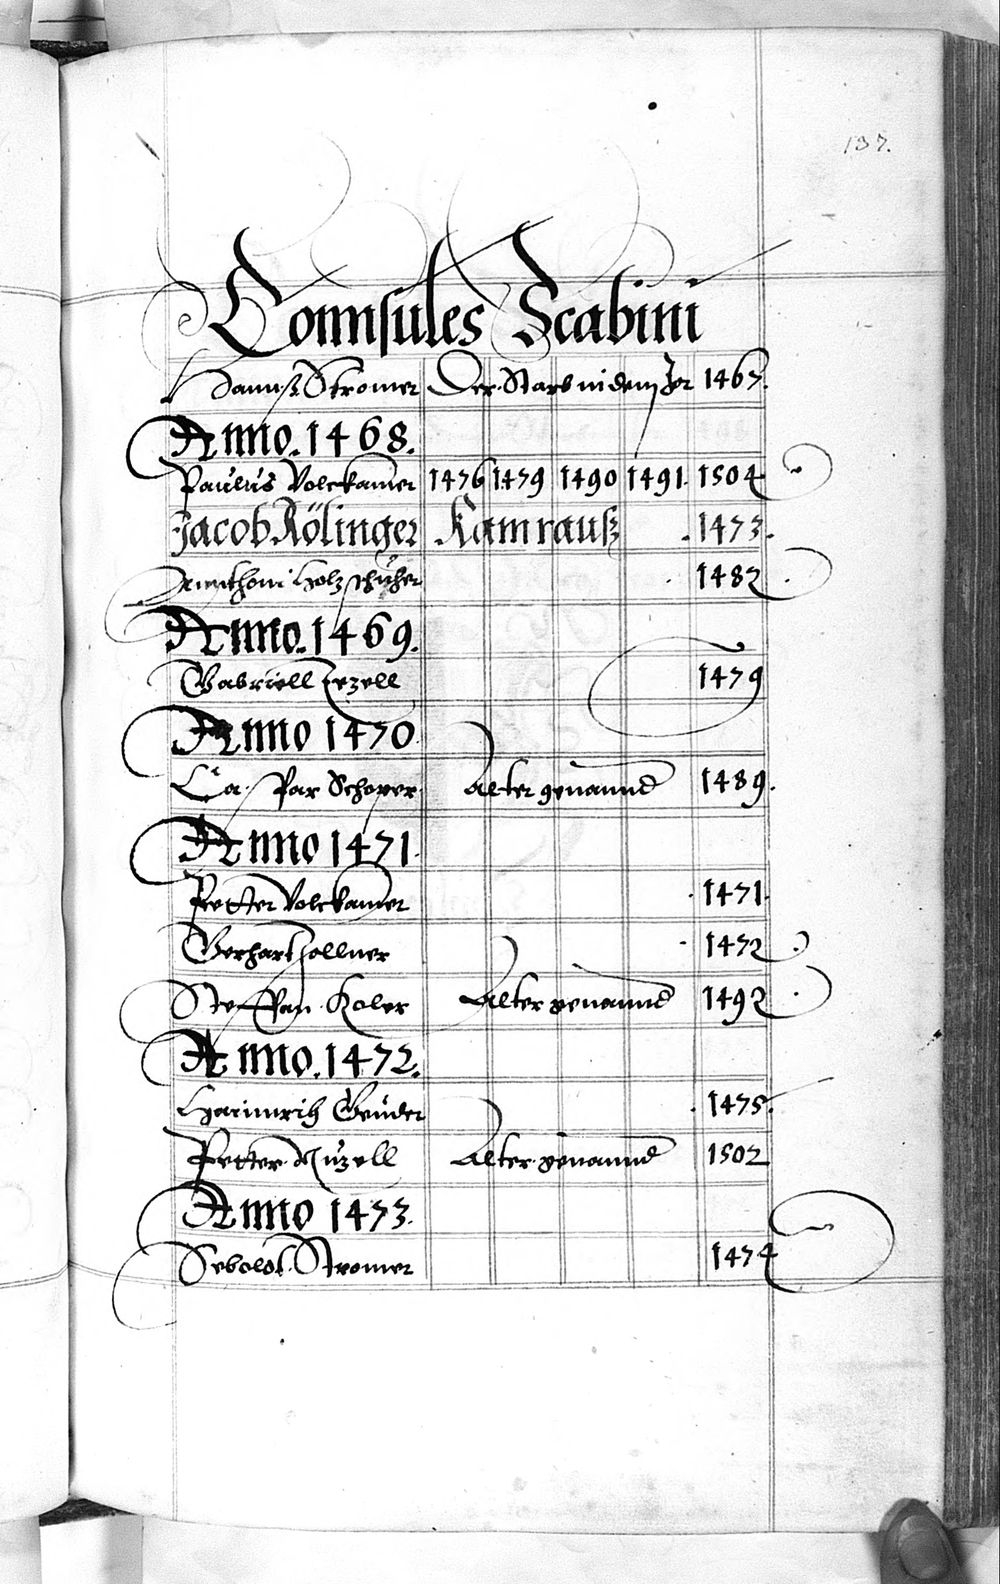 137.
Connsules Scabini
Hannß Stromer Der Starb in dem Jor 1467.
Anno. 1468.
Paulus Volckamer 1476 1479 1490 1491. 1504
Jacob Rölinger Kamrauß .1473.
Annthoni Holzschuher 1482
Anno. 1469.
Gabriell Tezell 1479
Anno 1470.
Caspar Schopper Alter genannd 1489.
Anno 1471.
Petter Volckamer 1471.
Gerhart Zollner 1472
Steffan Koler Alter genannd 1492
Anno. 1472.
Hainnrich Geuder 1475.
Petter Nüzell Alter genannd 1502
Anno 1473.
Seboldt Stromer 1474